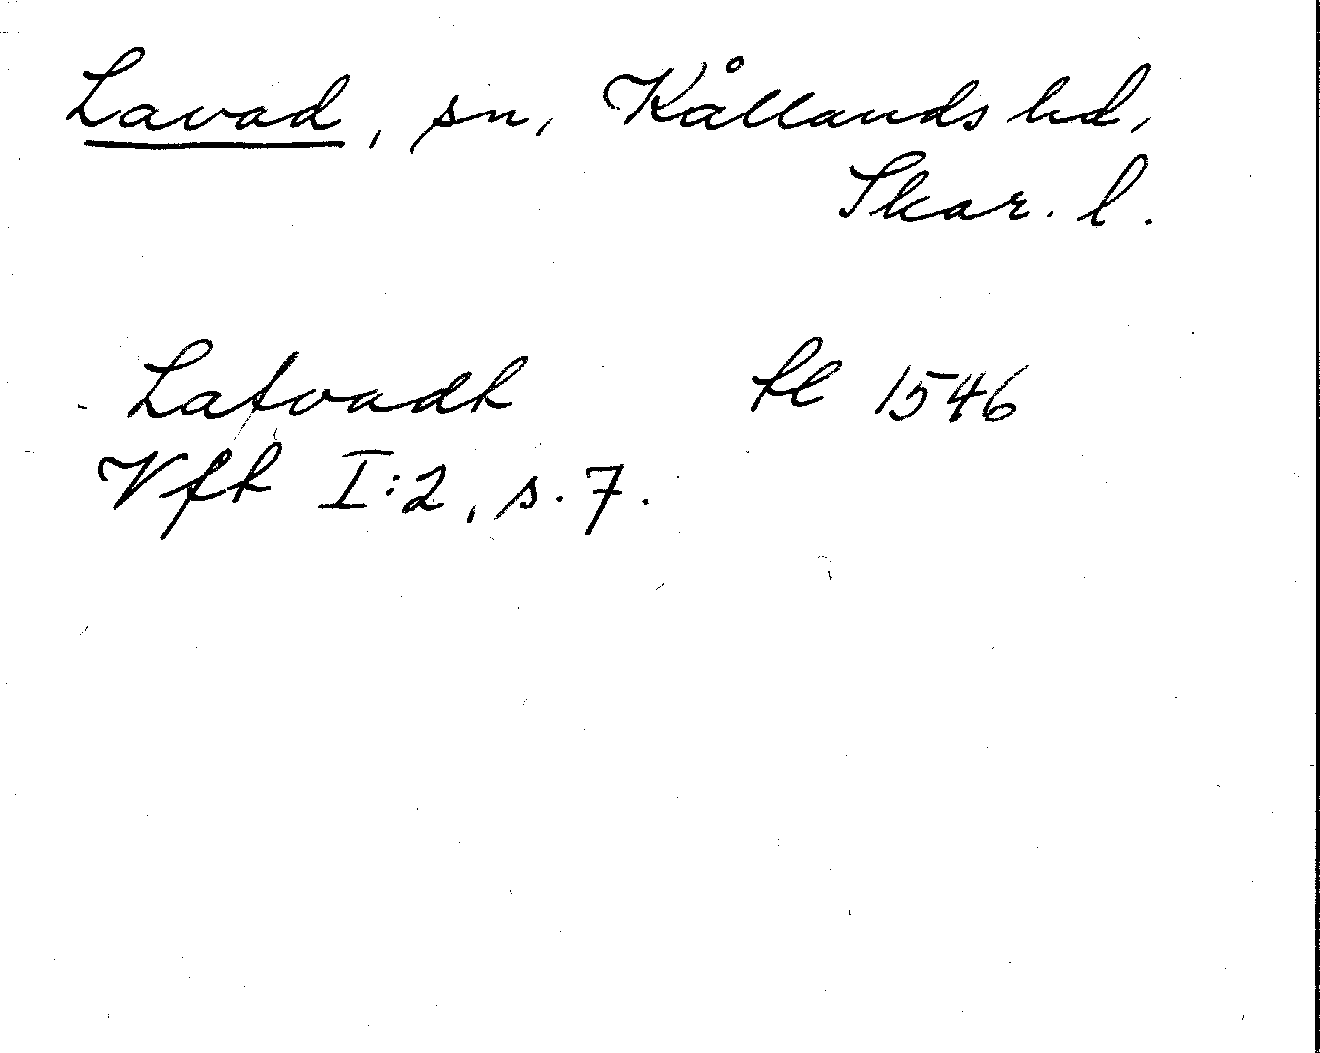 Lavad, sn, Kållands hd,
Skar. l.
Lafvadh fl 1546
Vfh I:2, s. 7.